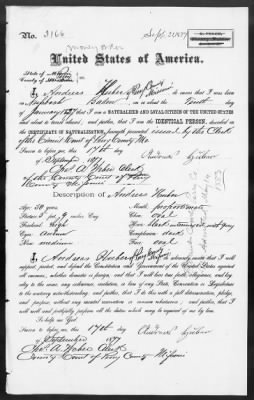 No. 3166
Sept. 20, 1877
money order
United States of America.
State of
County of
I, Andreas Huber of Perry County Missouri do swear that I was born
in Baden on or about the day of
January 1827 that I am a NATURALIZED AND LOYAL CITIZEN OF THE UNITED STATES
and about to travel abroad; and further that I am the IDENTICAL PERSON, described in
the CERTIFICATE OF NATURALIZATION, herewith presented issued by the Clerk
of the Circuit Court of Perry County Mo
Sworn to before me, this 17th day
of September 1877
Andreas Huber
Jos. A. Weber Clerk
of the County Court of Perry
County Missouri
Description of Andreas Huber
Age: 50 years
Mouth: proportionate
Stature: 5 feet
Chin: oval
Forehead: high
Hair: black intermixed with gray
Eyes: brown
Complexion: dark
Nose: medium
Face: oval
I, Andreas Huber of Perry County Missouri do solemnly swear that I will
support, protect, and defend the Constitution and Government of the United States against
all enemies, whether domestic or foreign; and that I will bear true faith, allegiance, and loy-
alty to the same, any ordinance, resolution, or law of any State, Convention or Legislature
to the contrary notwithstanding; and further, that I do this with a full determination, pledge,
and purpose, without any mental reservation or evasion whatsoever; and further, that I will
well and faithfully perform all the duties which may be required of me by law.
So help me God!
Sworn to before me, this 17th day
of September 1877
Andreas Huber
Jos. A. Weber Clerk
County Court of Perry County Missouri